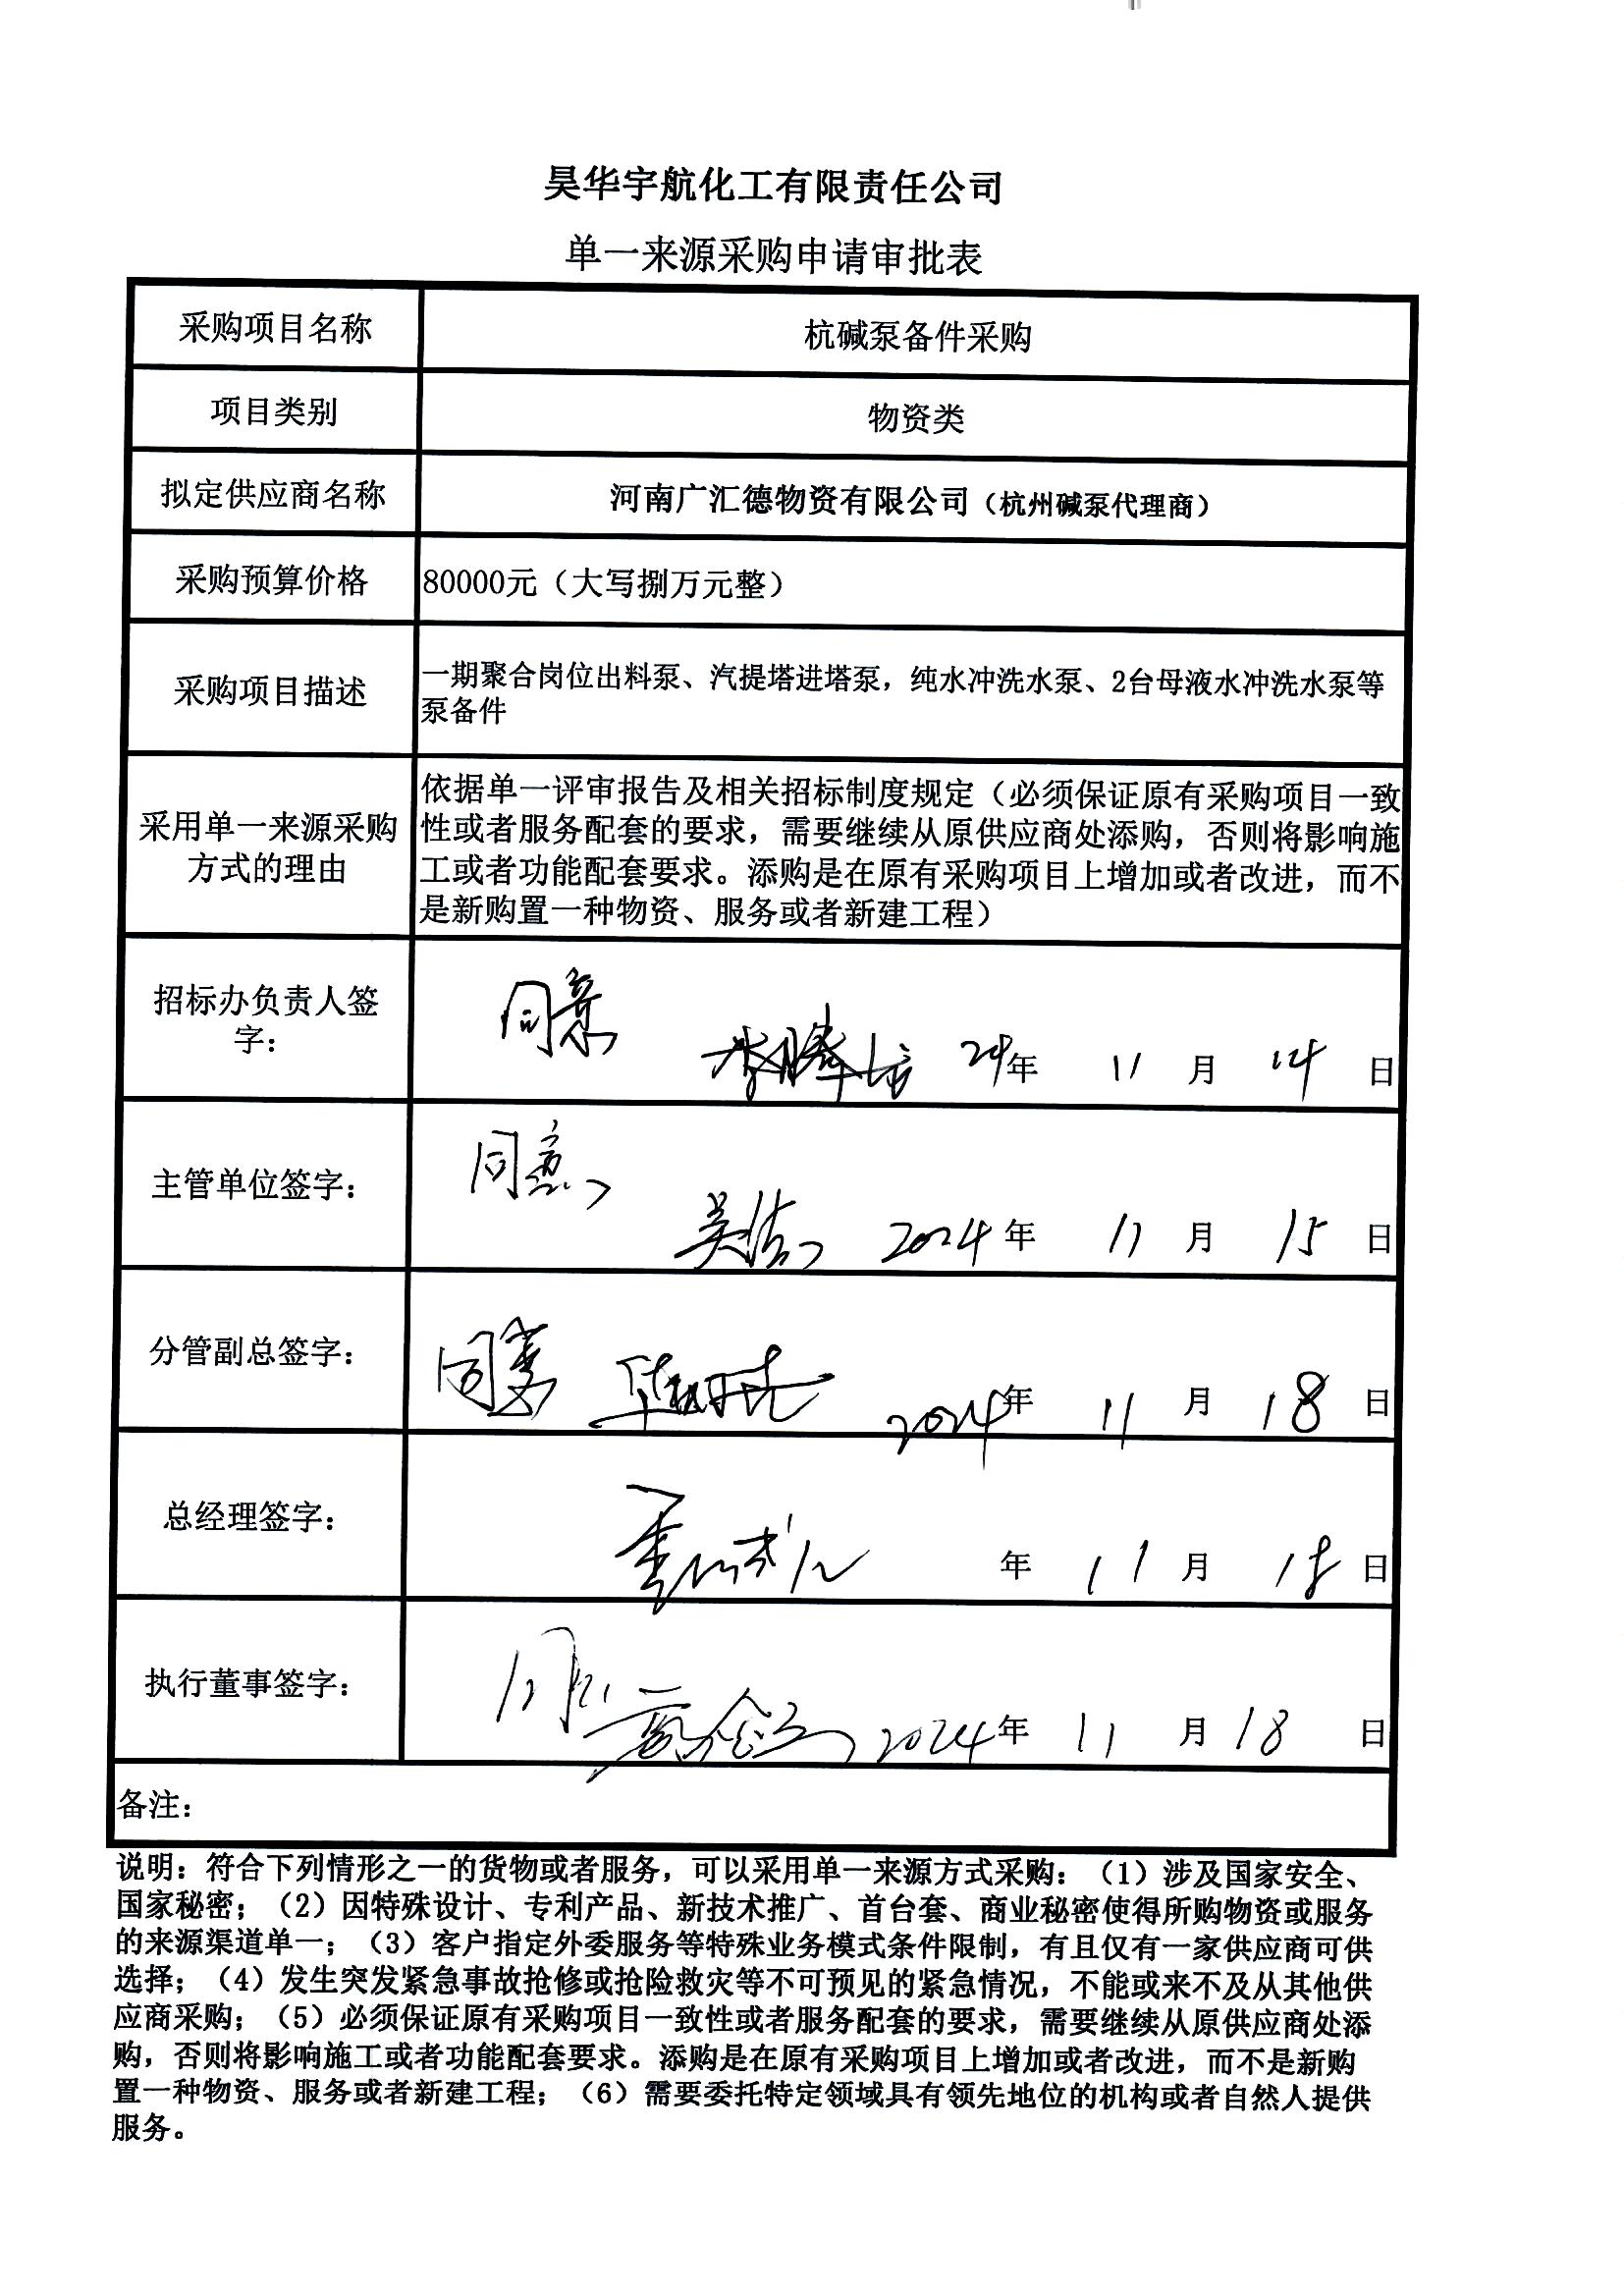 昊华宇航化工有限责任公司
单一来源采购申请审批表
采购项目名称
杭碱泵备件采购
项目类别
物资类
拟定供应商名称
河南广汇德物资有限公司（杭州碱泵代理商）
采购预算价格
80000元（大写捌万元整）
采购项目描述
一期聚合岗位出料泵、汽提塔进塔泵，纯水冲洗水泵、2台母液水冲洗水泵等
泵备件
采用单一来源采购
方式的理由
依据单一评审报告及相关招标制度规定（必须保证原有采购项目一致
性或者服务配套的要求，需要继续从原供应商处添购，否则将影响施
工或者功能配套要求。添购是在原有采购项目上增加或者改进，而不
是新购置一种物资、服务或者新建工程）
招标办负责人签
字：
同意
24年 11 月 14 日
主管单位签字：
同意
2024年 11 月 15 日
分管副总签字：
同意
2024年 11 月 18 日
总经理签字：
年 11 月 18 日
执行董事签字：
2024年 11 月 18 日
备注：
说明：符合下列情形之一的货物或者服务，可以采用单一来源方式采购：（1）涉及国家安全、
国家秘密；（2）因特殊设计、专利产品、新技术推广、首台套、商业秘密使得所购物资或服务
的来源渠道单一；（3）客户指定外委服务等特殊业务模式条件限制，有且仅有一家供应商可供
选择；（4）发生突发紧急事故抢修或抢险救灾等不可预见的紧急情况，不能或来不及从其他供
应商采购；（5）必须保证原有采购项目一致性或者服务配套的要求，需要继续从原供应商处添
购，否则将影响施工或者功能配套要求。添购是在原有采购项目上增加或者改进，而不是新购
置一种物资、服务或者新建工程；（6）需要委托特定领域具有领先地位的机构或者自然人提供
服务。